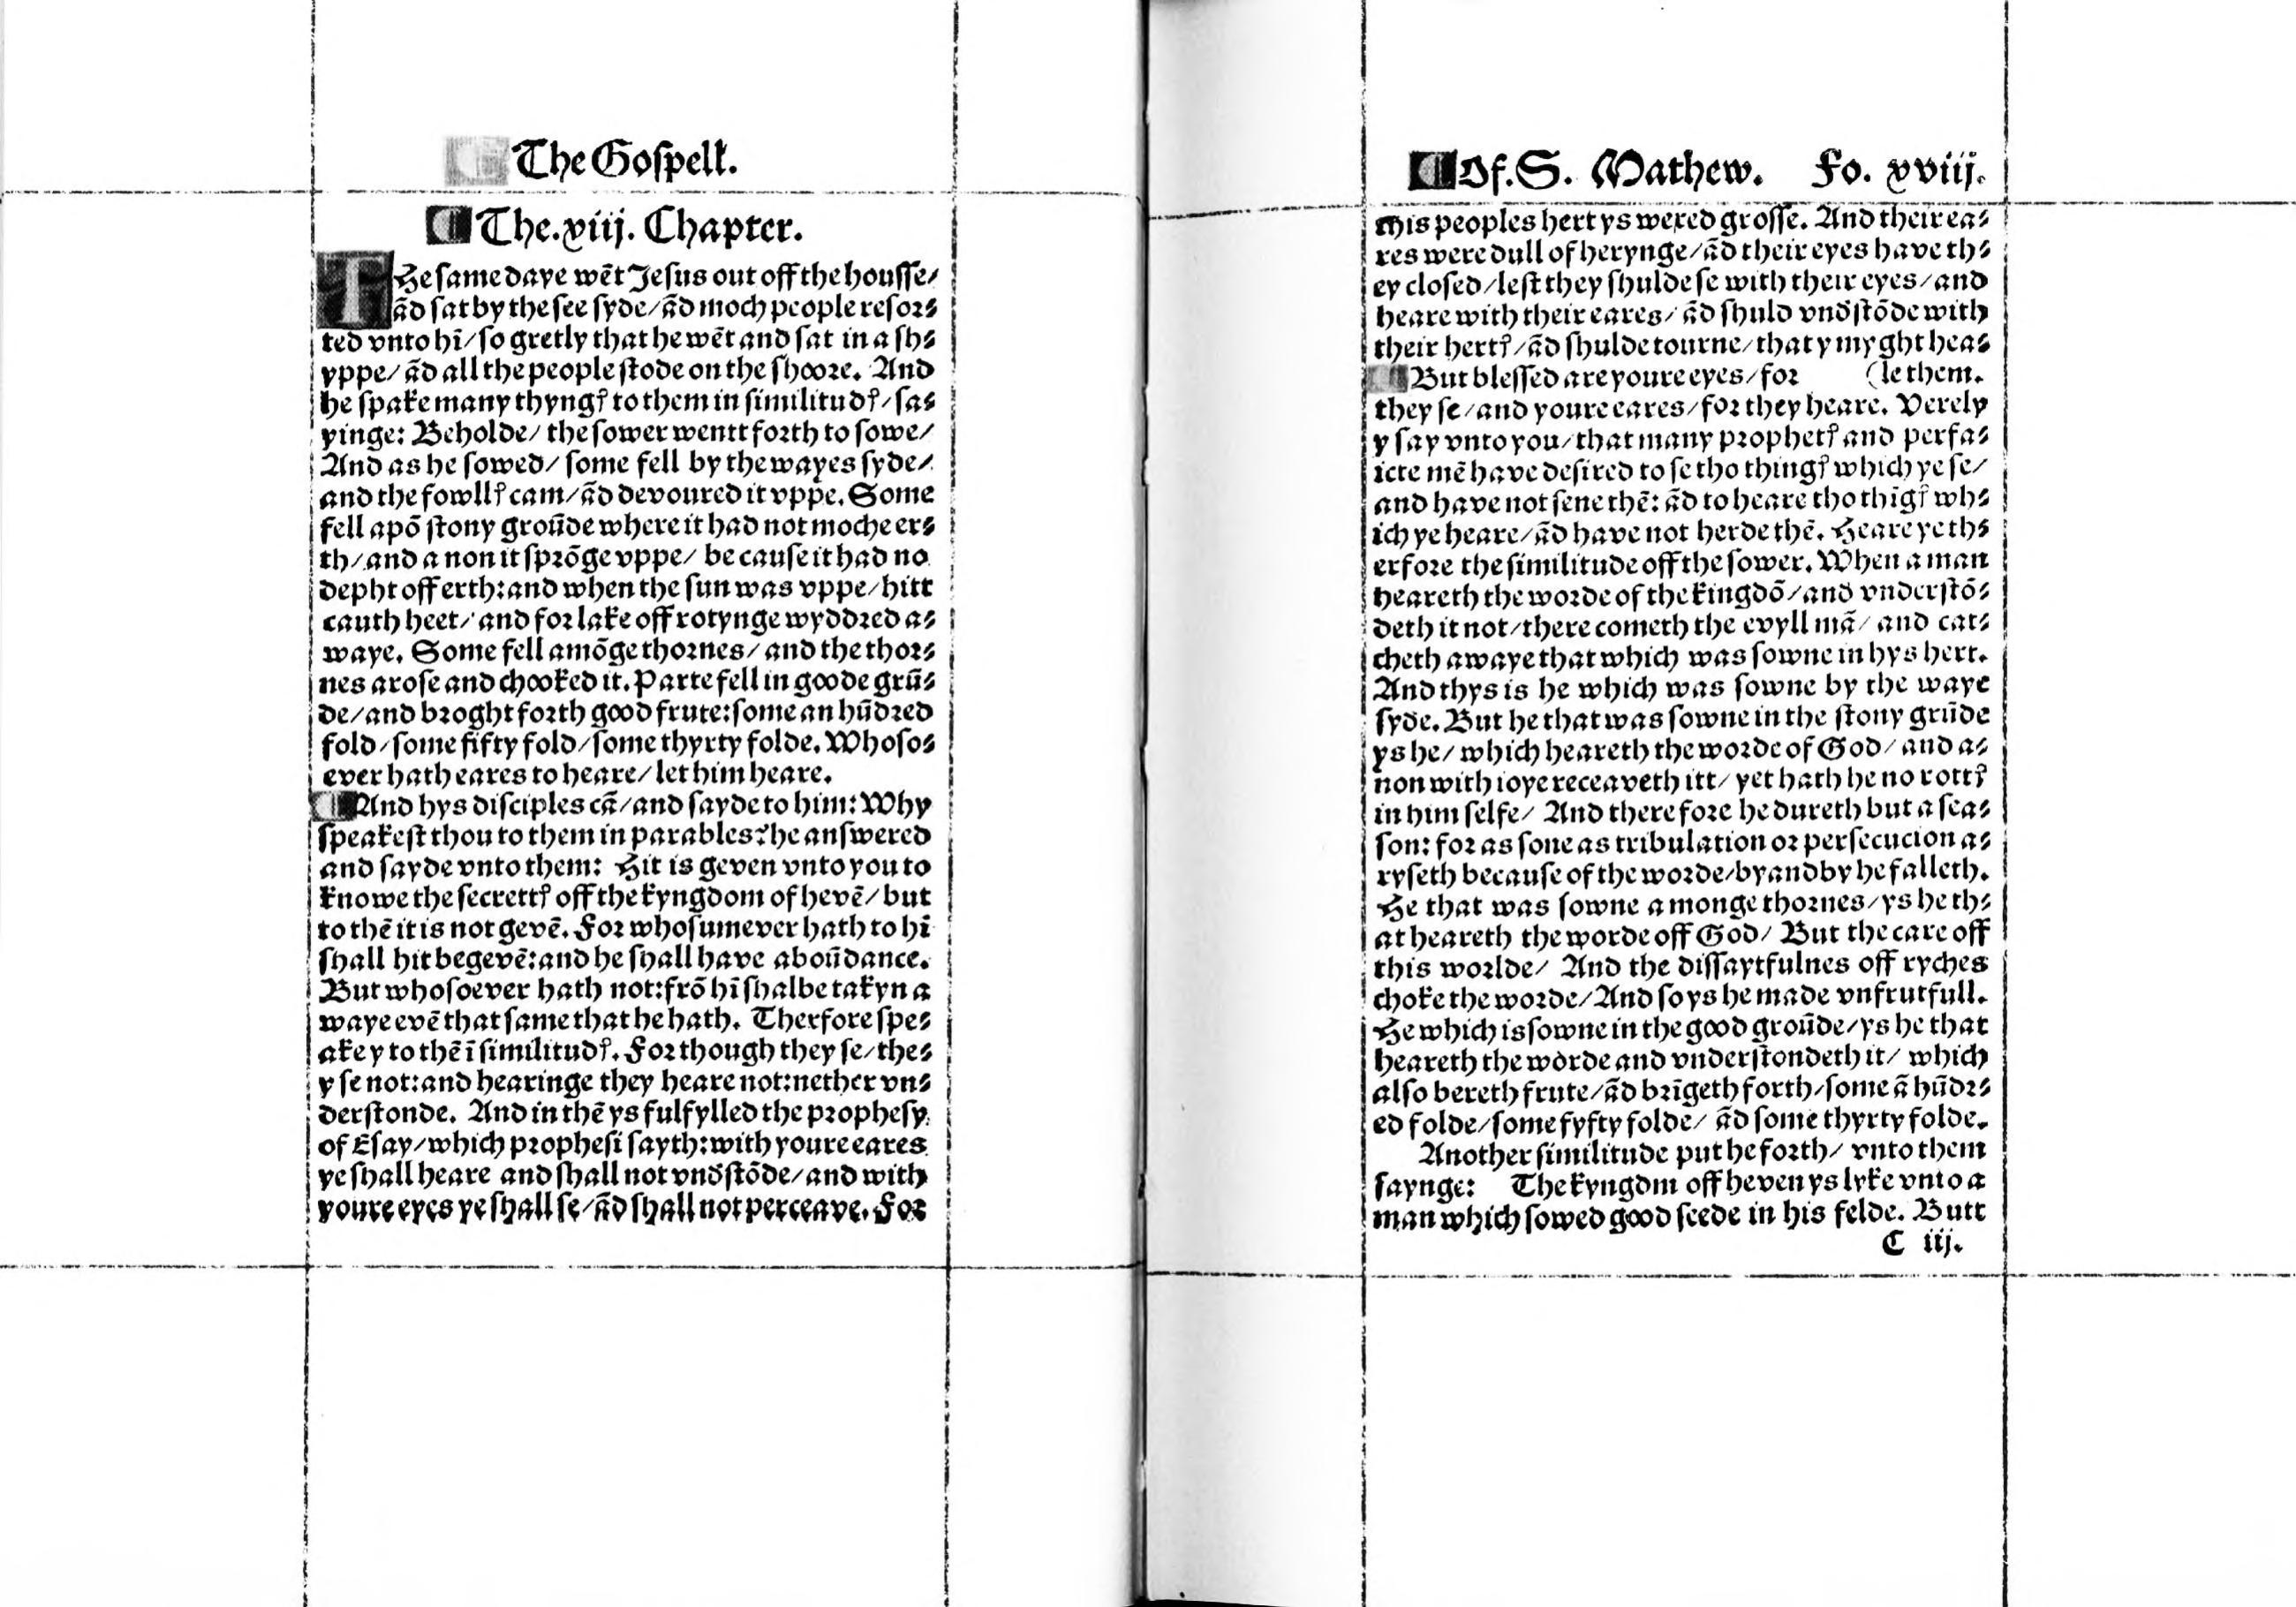 ¶ The Gospell.
¶ The.xiij. Chapter.
THe same daye wẽt Jesus out off the housse/
ãd sat by the see syde/ãd moch people resor⸗
ted vnto hĩ/so gretly that he wẽt and sat in a sh⸗
yppe/ãd all the people stode on the shoore. And
he spake many thyngꝭ to them in similitudꝭ/sa⸗
yinge: Beholde/the sower wentt forth to sowe/
And as he sowed/some fell by the wayes syde/
and the fowllꝭ cam/ãd devoured it vppe. Some
fell apõ stony groũde where it had not moche er⸗
th/and a non it sprõge vppe/be cause it had no
depht off erth: and when the sun was vppe/hitt
cauth heet/and for lake off rotynge wyddred a⸗
waye. Some fell amõge thornes/and the thor⸗
nes arose and chooked it. Parte fell in goode grũ⸗
de/and broght forth good frute: some an hũdred
fold/some fifty fold/some thyrty folde. Whoso⸗
ever hath eares to heare/let him heare.
¶ And hys disciples cã/and sayde to him: Why
speakest thou to them in parables? he answered
and sayde vnto them: Hit is geven vnto you to
knowe the secrettꝭ off the kyngdom of hevẽ/but
to thẽ it is not gevẽ. For whosumever hath to hĩ
shall hit be gevẽ: and he shall have aboũdance.
But whosoever hath not: frõ hĩ shalbe takyn a
waye evẽ that same that he hath. Therfore spe⸗
ake y to thẽ ĩ similitudꝭ. For though they se/the⸗
y se not: and hearinge they heare not: nether vn⸗
derstonde. And in thẽ ys fulfylled the prophesy
of Esay/which prophesi sayth: with youre eares
ye shall heare and shall not vnd̾stõde/and with
youre eyes ye shall se/ãd shall not perceave. For
¶ Of.S. Mathew. Fo. xviij.
this peoples hert ys wexed grosse. And their ea⸗
res were dull of herynge/ãd their eyes have th⸗
ey closed/lest they shulde se with their eyes/and
heare with their eares/ãd shuld vnd̾stõde with
their hertꝭ/ãd shulde tourne/that y myght hea⸗
¶ But blessed are youre eyes/for (le them.
they se/and youre eares/for they heare. Verely
y say vnto you/that many prophetꝭ and perfa⸗
icte mẽ have desired to se tho thingꝭ which ye se/
and have not sene thẽ: ãd to heare tho thĩgꝭ wh⸗
ich ye heare/ãd have not herde thẽ. Heare ye th⸗
erfore the similitude off the sower. When a man
heareth the worde of the kingdõ/and vnderstõ⸗
deth it not/there cometh the evyll mã/and cat⸗
cheth awaye that which was sowne in hys hert.
And thys is he which was sowne by the waye
syde. But he that was sowne in the stony grũde
ys he/which heareth the worde of God/and a⸗
non with ioye receaveth itt/yet hath he no rottꝭ
in him selfe/And therefore he dureth but a sea⸗
son: for as sone as tribulation or persecucion a⸗
ryseth because of the worde/by and by he falleth.
He that was sowne a monge thornes/ys he th⸗
at heareth the worde off God/But the care off
this worlde/And the dissaytfulnes off ryches
choke the worde/And so ys he made vnfrutfull.
He which is sowne in the good groũde/ys he that
heareth the worde and vnderstondeth it/which
also bereth frute/ãd brĩgeth forth/some ã hũdr⸗
ed folde/some fyfty folde/ãd some thyrty folde.
Another similitude put he forth/vnto them
saynge: The kyngdm off heven ys lyke vnto a
man which sowed good seede in his felde. Butt
C iij.